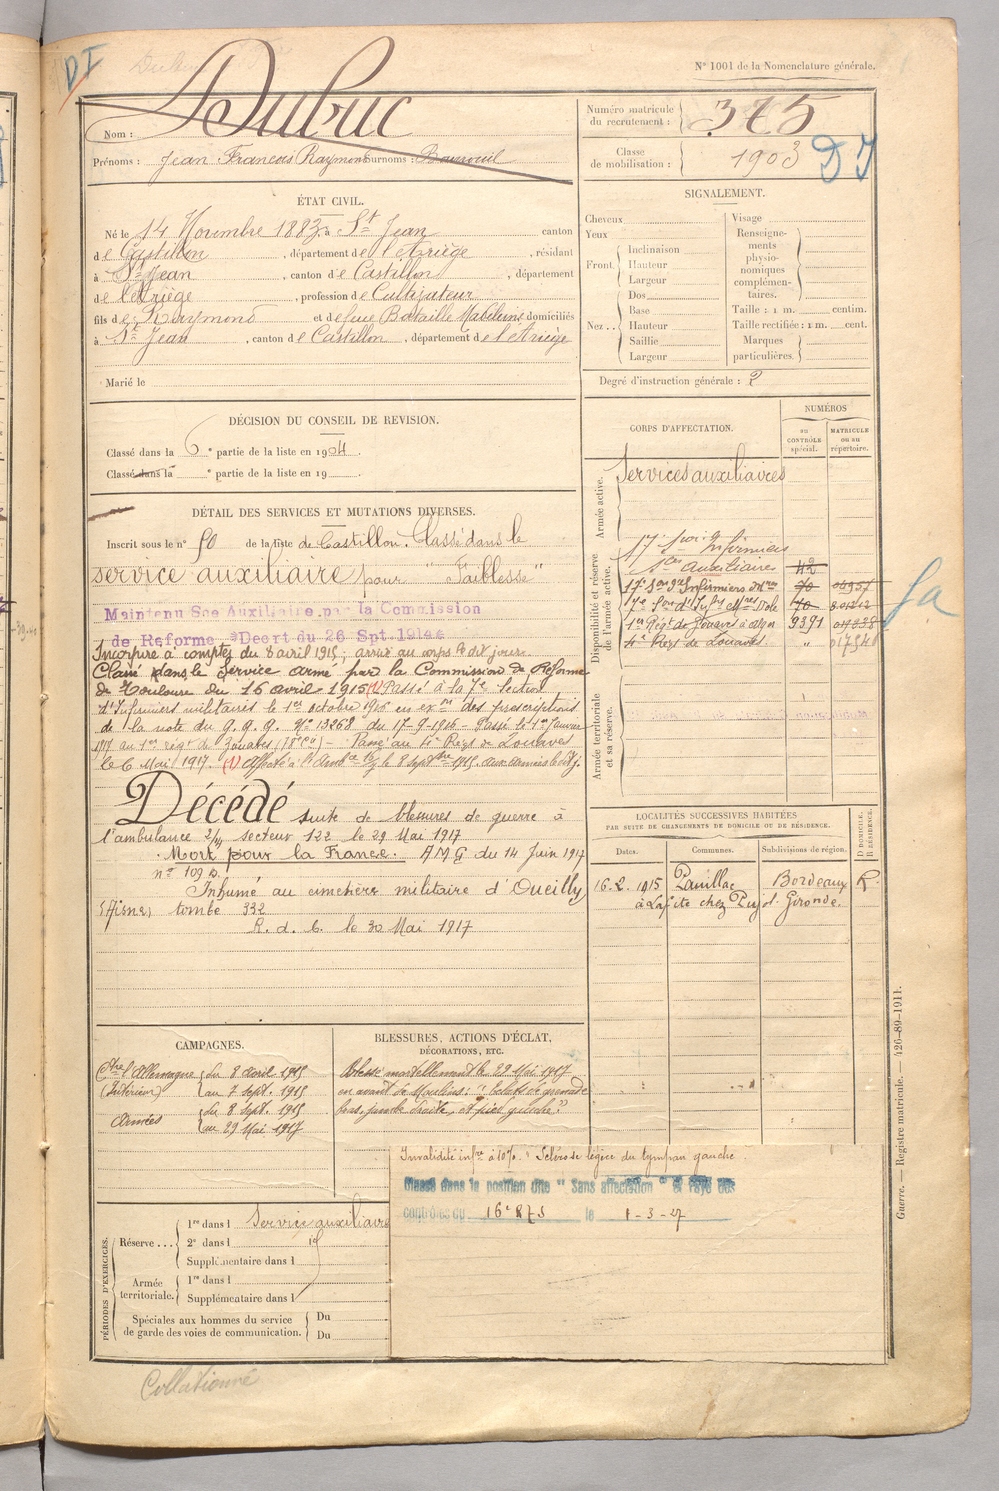 D I
N° 1001 de la Nomenclature générale.
Nom : Dubuc
Prénoms : Jean François Raymond Surnoms :
Numéro matricule du recrutement : 375
Classe de mobilisation : 1903
D I
ÉTAT CIVIL.
Né le 14 Novembre 1883, à St Jean canton
de Castillon, département de l'Ariège, résidant
à St Jean, canton de Castillon, département
de l'Ariège, profession de Cultivateur
fils de Raymond et de feue Bataille Madeleine domiciliés
à St Jean, canton de Castillon, département de l'Ariège
Marié le
SIGNALEMENT.
Cheveux
Yeux
Front
Inclinaison
Hauteur
Largeur
Nez
Dos
Base
Hauteur
Saillie
Largeur
Visage
Renseignements physionomiques complémentaires.
Taille : 1 m. centim.
Taille rectifiée : 1 m. cent.
Marques particulières.
Degré d'instruction générale : 2
DÉCISION DU CONSEIL DE REVISION.
Classé dans la 6e partie de la liste en 1904.
Classé dans la e partie de la liste en 19
CORPS D'AFFECTATION.
NUMÉROS
au CONTRÔLE spécial.
MATRICULE ou au répertoire.
Armée active.
Services auxiliaires
Disponibilité et réserve de l'armée active.
17e Son Infirmiers
Sces Auxiliaires 42
17e Son d'Infirmiers Mres 70
7e Son d'Infirs Mres Dole 70
1er Régt de Zouaves à Alger 9391
4e Régt de Zouaves "
Armée territoriale et sa réserve.
DÉTAIL DES SERVICES ET MUTATIONS DIVERSES.
Inscrit sous le n° 50 de la liste de Castillon. Classé dans le
service auxiliaire pour "Faiblesse"
Maintenu Sce Auxiliaire par la Commission
de Reforme Décrt du 26 Spt 1914
Incorporé à compter du 8 avril 1915, arrivé au corps le dit jour.
Classé dans le Service armé par la Commission de Réforme
de Toulouse du 16 avril 1915 (1) Passé à la 7e Section
d'Infirmiers militaires le 1er octobre 1916 en exon des prescriptions
de la note du G.Q.G. N° 13268 du 17-9-1916 - Passé le 1er Janvier
1917 au 1er régt de Zouaves - Passé au 4e Régt de Zouaves
le 6 Mai 1917. (1) Affecté à
Décédé suite de blessures de guerre à
l'ambulance secteur 122 le 29 Mai 1917
Mort pour la France. A M G du 14 Juin 1917
n° 109 D.
Inhumé au cimetière militaire d'Oeuilly
(Aisne) tombe 332
R. d. C. le 30 Mai 1917
LOCALITÉS SUCCESSIVES HABITÉES
PAR SUITE DE CHANGEMENTS DE DOMICILE OU DE RÉSIDENCE.
Dates.
Communes.
Subdivisions de région.
D DOMICILE. R RÉSIDENCE.
16.2.1915 Pauillac Bordeaux R.
à Lafite chez Pujol. Gironde.
CAMPAGNES.
Ctre l'Allemagne du 8 avril 1915
(Intérieur) au 7 Sept. 1915
Armées du 8 Sept. 1915
au 29 Mai 1917
BLESSURES, ACTIONS D'ÉCLAT, DÉCORATIONS, ETC.
Blessé mortellement le 29 Mai 1917
en avant de Moulins : "éclats de grenade
bras, jambe droite, et pied gauche"
Invalidité infre à 10%. Sclérose légère du tympan gauche.
Classé dans la position dite "Sans affectation" et rayé des
contrôles du 16e le 1-3-27
PÉRIODES D'EXERCICES.
Réserve
1re dans l Service auxiliaire
2e dans l
Supplémentaire dans l
Armée territoriale.
1re dans l
Supplémentaire dans l
Spéciales aux hommes du service de garde des voies de communication.
Du
Du
Guerre. — Registre matricule. — 426-89-1911.
Collationné